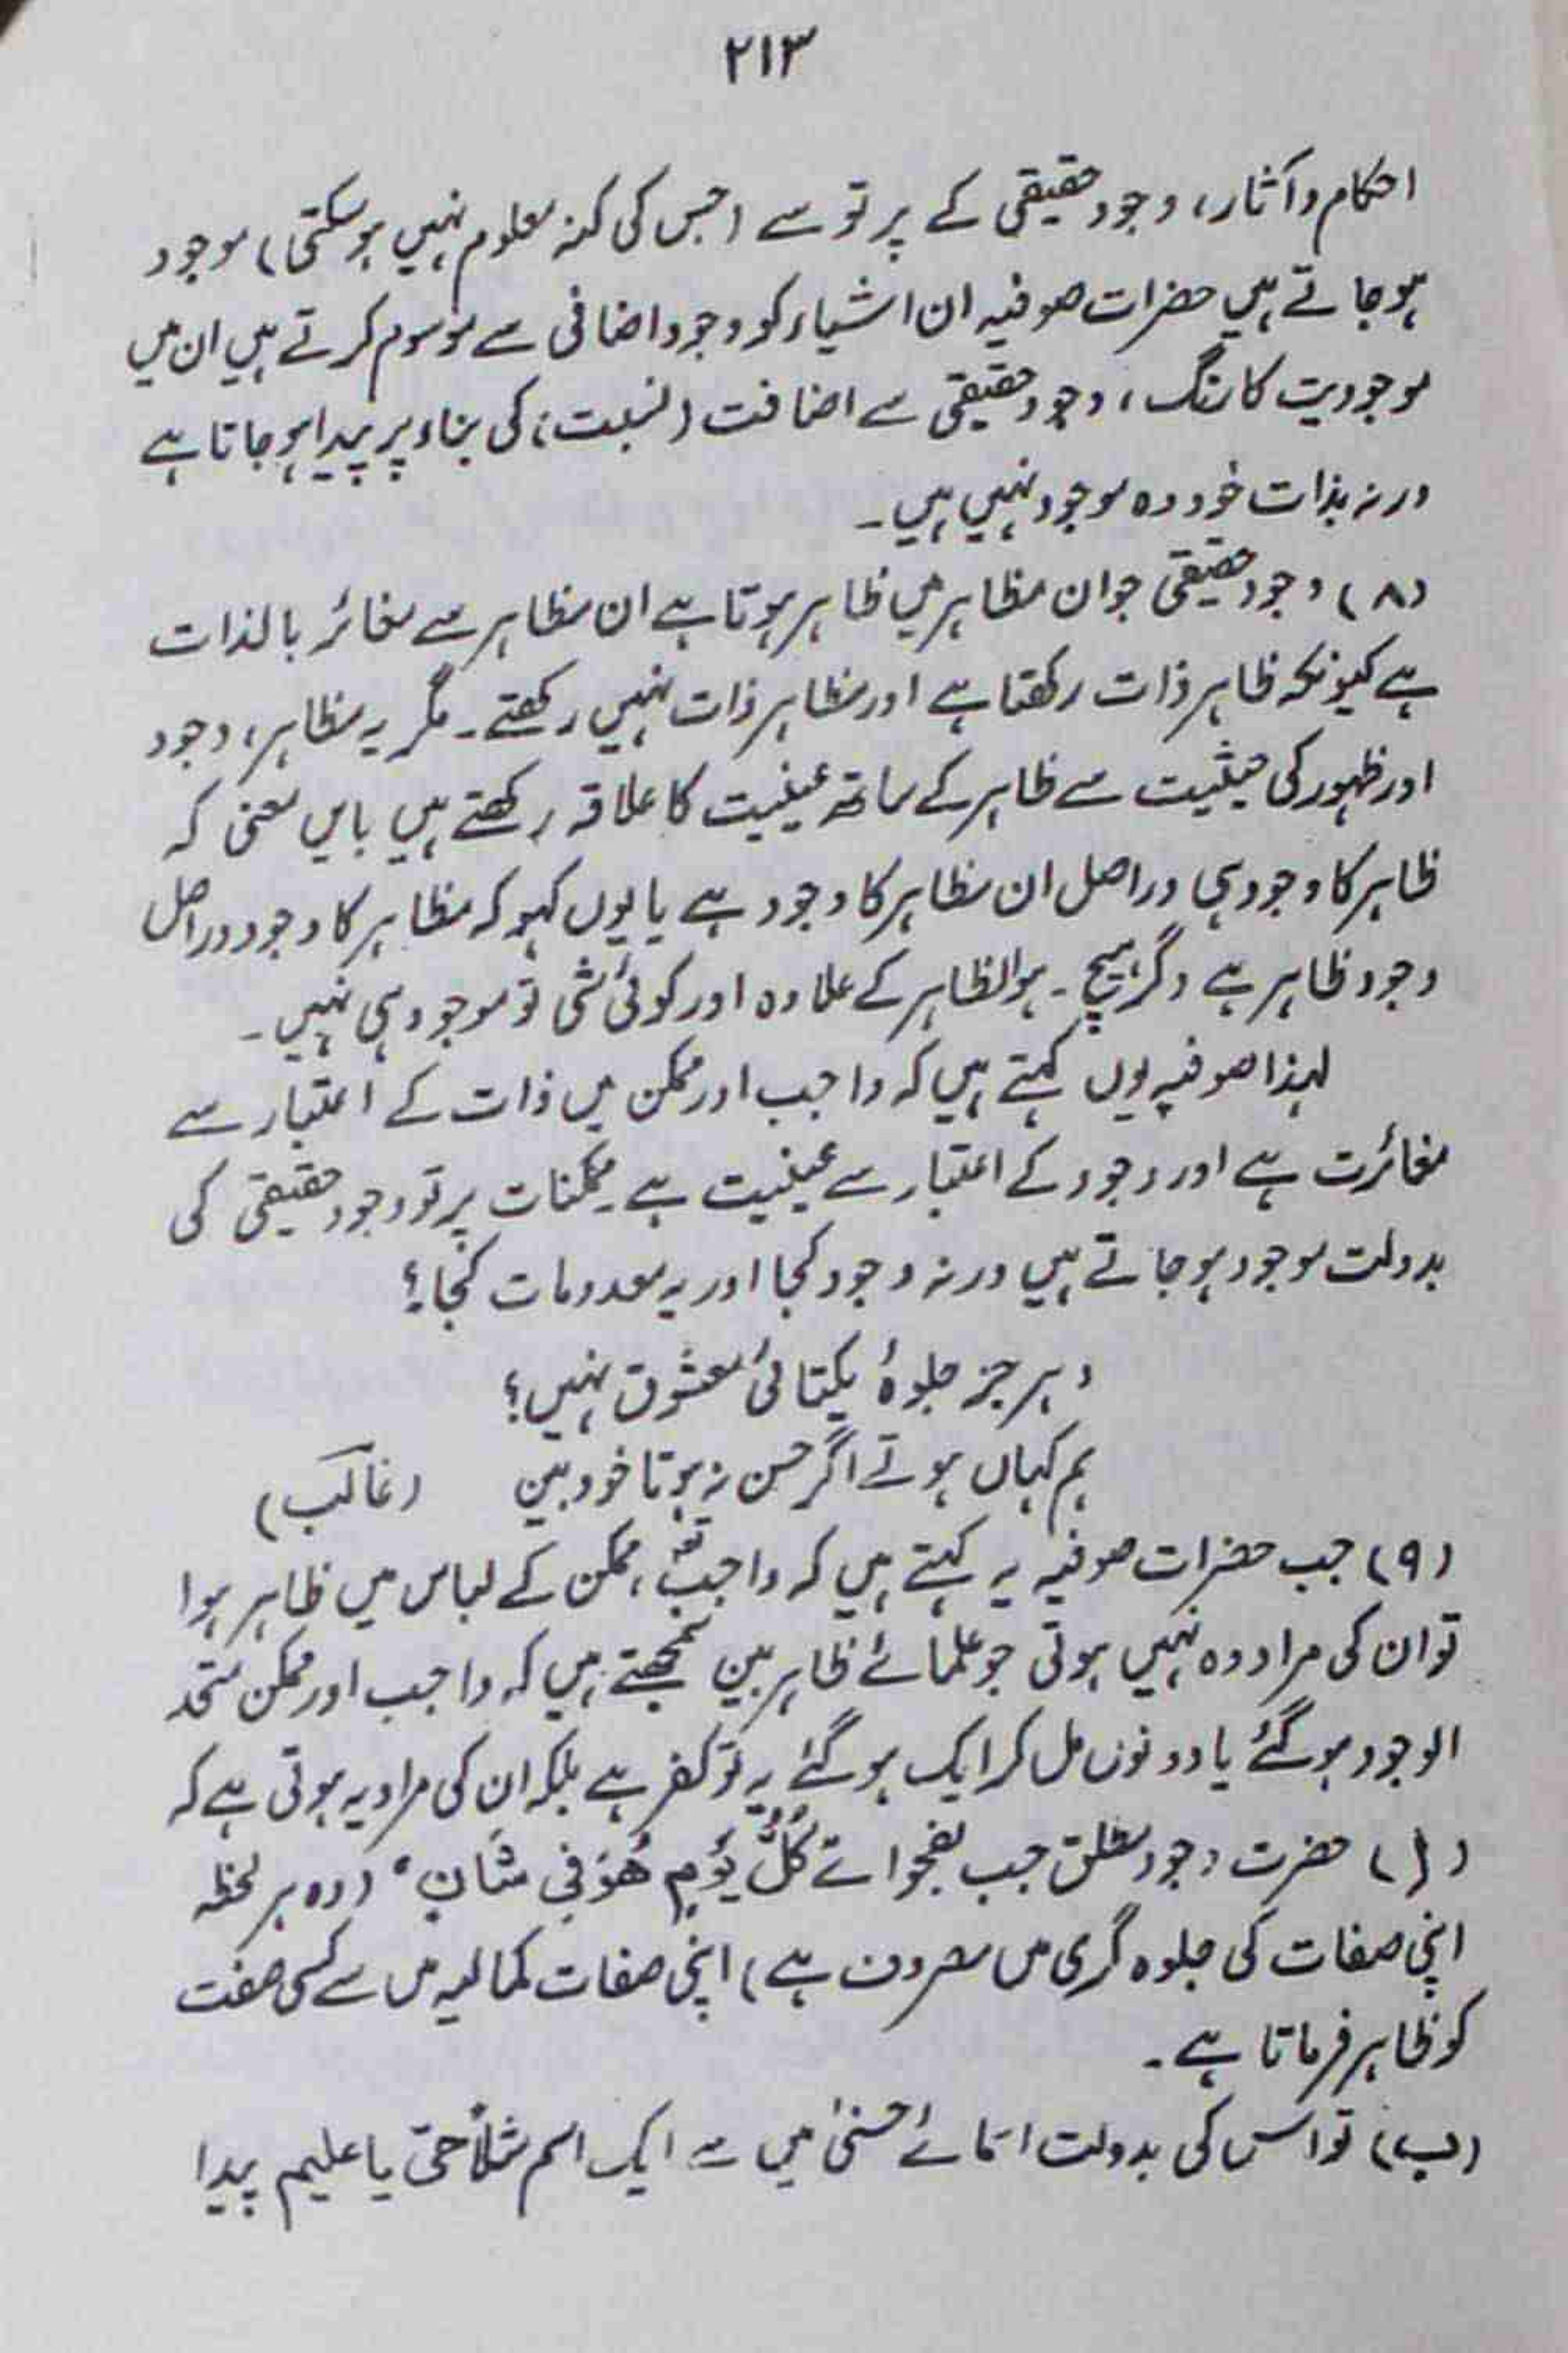 ۲۱۳
احکام و آثار، وجود حقیقی کے پرتو سے (جس کی کنہ معلوم نہیں ہوسکتی) موجود
ہوجاتے ہیں حضرات صوفیہ ان اشیاء کو وجود اضافی سے موسوم کرتے ہیں ان میں
موجودیت کا رنگ، وجود حقیقی سے اضافت (نسبت) کی بناء پر پیدا ہوجاتا ہے
ورنہ بذات خود وہ موجود نہیں ہیں۔
(۸) وجود حقیقی جو ان مظاہر میں ظاہر ہوتا ہے ان مظاہر سے مغائر بالذات
ہے کیونکہ ظاہر ذات رکھتا ہے اور مظاہر ذات نہیں رکھتے۔ مگر یہ مظاہر، وجود
اور ظہور کی حیثیت سے ظاہر کے ساتھ عینیت کا علاقہ رکھتے ہیں بایں معنی کہ
ظاہر کا وجود ہی دراصل ان مظاہر کا وجود ہے یا یوں کہو کہ مظاہر کا وجود دراصل
وجود ظاہر ہے دگر ہیچ۔ ہوالظاہر کے علاوہ اور کوئی شی تو موجود ہی نہیں۔
لہذا صوفیہ یوں کہتے ہیں کہ واجب اور ممکن میں ذات کے اعتبار سے
مغائرت ہے اور وجود کے اعتبار سے عینیت ہے۔ ممکنات پرتو وجود حقیقی کی
بدولت موجود ہوجاتے ہیں ورنہ وجود کجا اور یہ معدومات کجا؟
دہر جز جلوۂ یکتائی معشوق نہیں؟
ہم کہاں ہوتے اگر حسن نہ ہوتا خود بین (غالب)
(۹) جب حضرات صوفیہ یہ کہتے ہیں کہ واجب، ممکن کے لباس میں ظاہر ہوا
تو ان کی مراد وہ نہیں ہوتی جو علمائے ظاہر بین سمجھتے ہیں کہ واجب اور ممکن متحد
الوجود ہوگئے یا دونوں مل کر ایک ہوگئے یہ تو کفر ہے بلکہ ان کی مراد یہ ہوتی ہے کہ
(ا) حضرت وجود مطلق جب بفحوائے كُلَّ يَوْمٍ هُوَ فِي شَأنٍ (وہ ہر لحظہ
اپنی صفات کی جلوہ گری میں مصروف ہے) اپنی صفات کمالیہ میں سے کسی صفت
کو ظاہر فرماتا ہے۔
(ب) تو اس کی بدولت اسمائے حسنیٰ میں سے ایک اسم مثلاً حی یا علیم پیدا